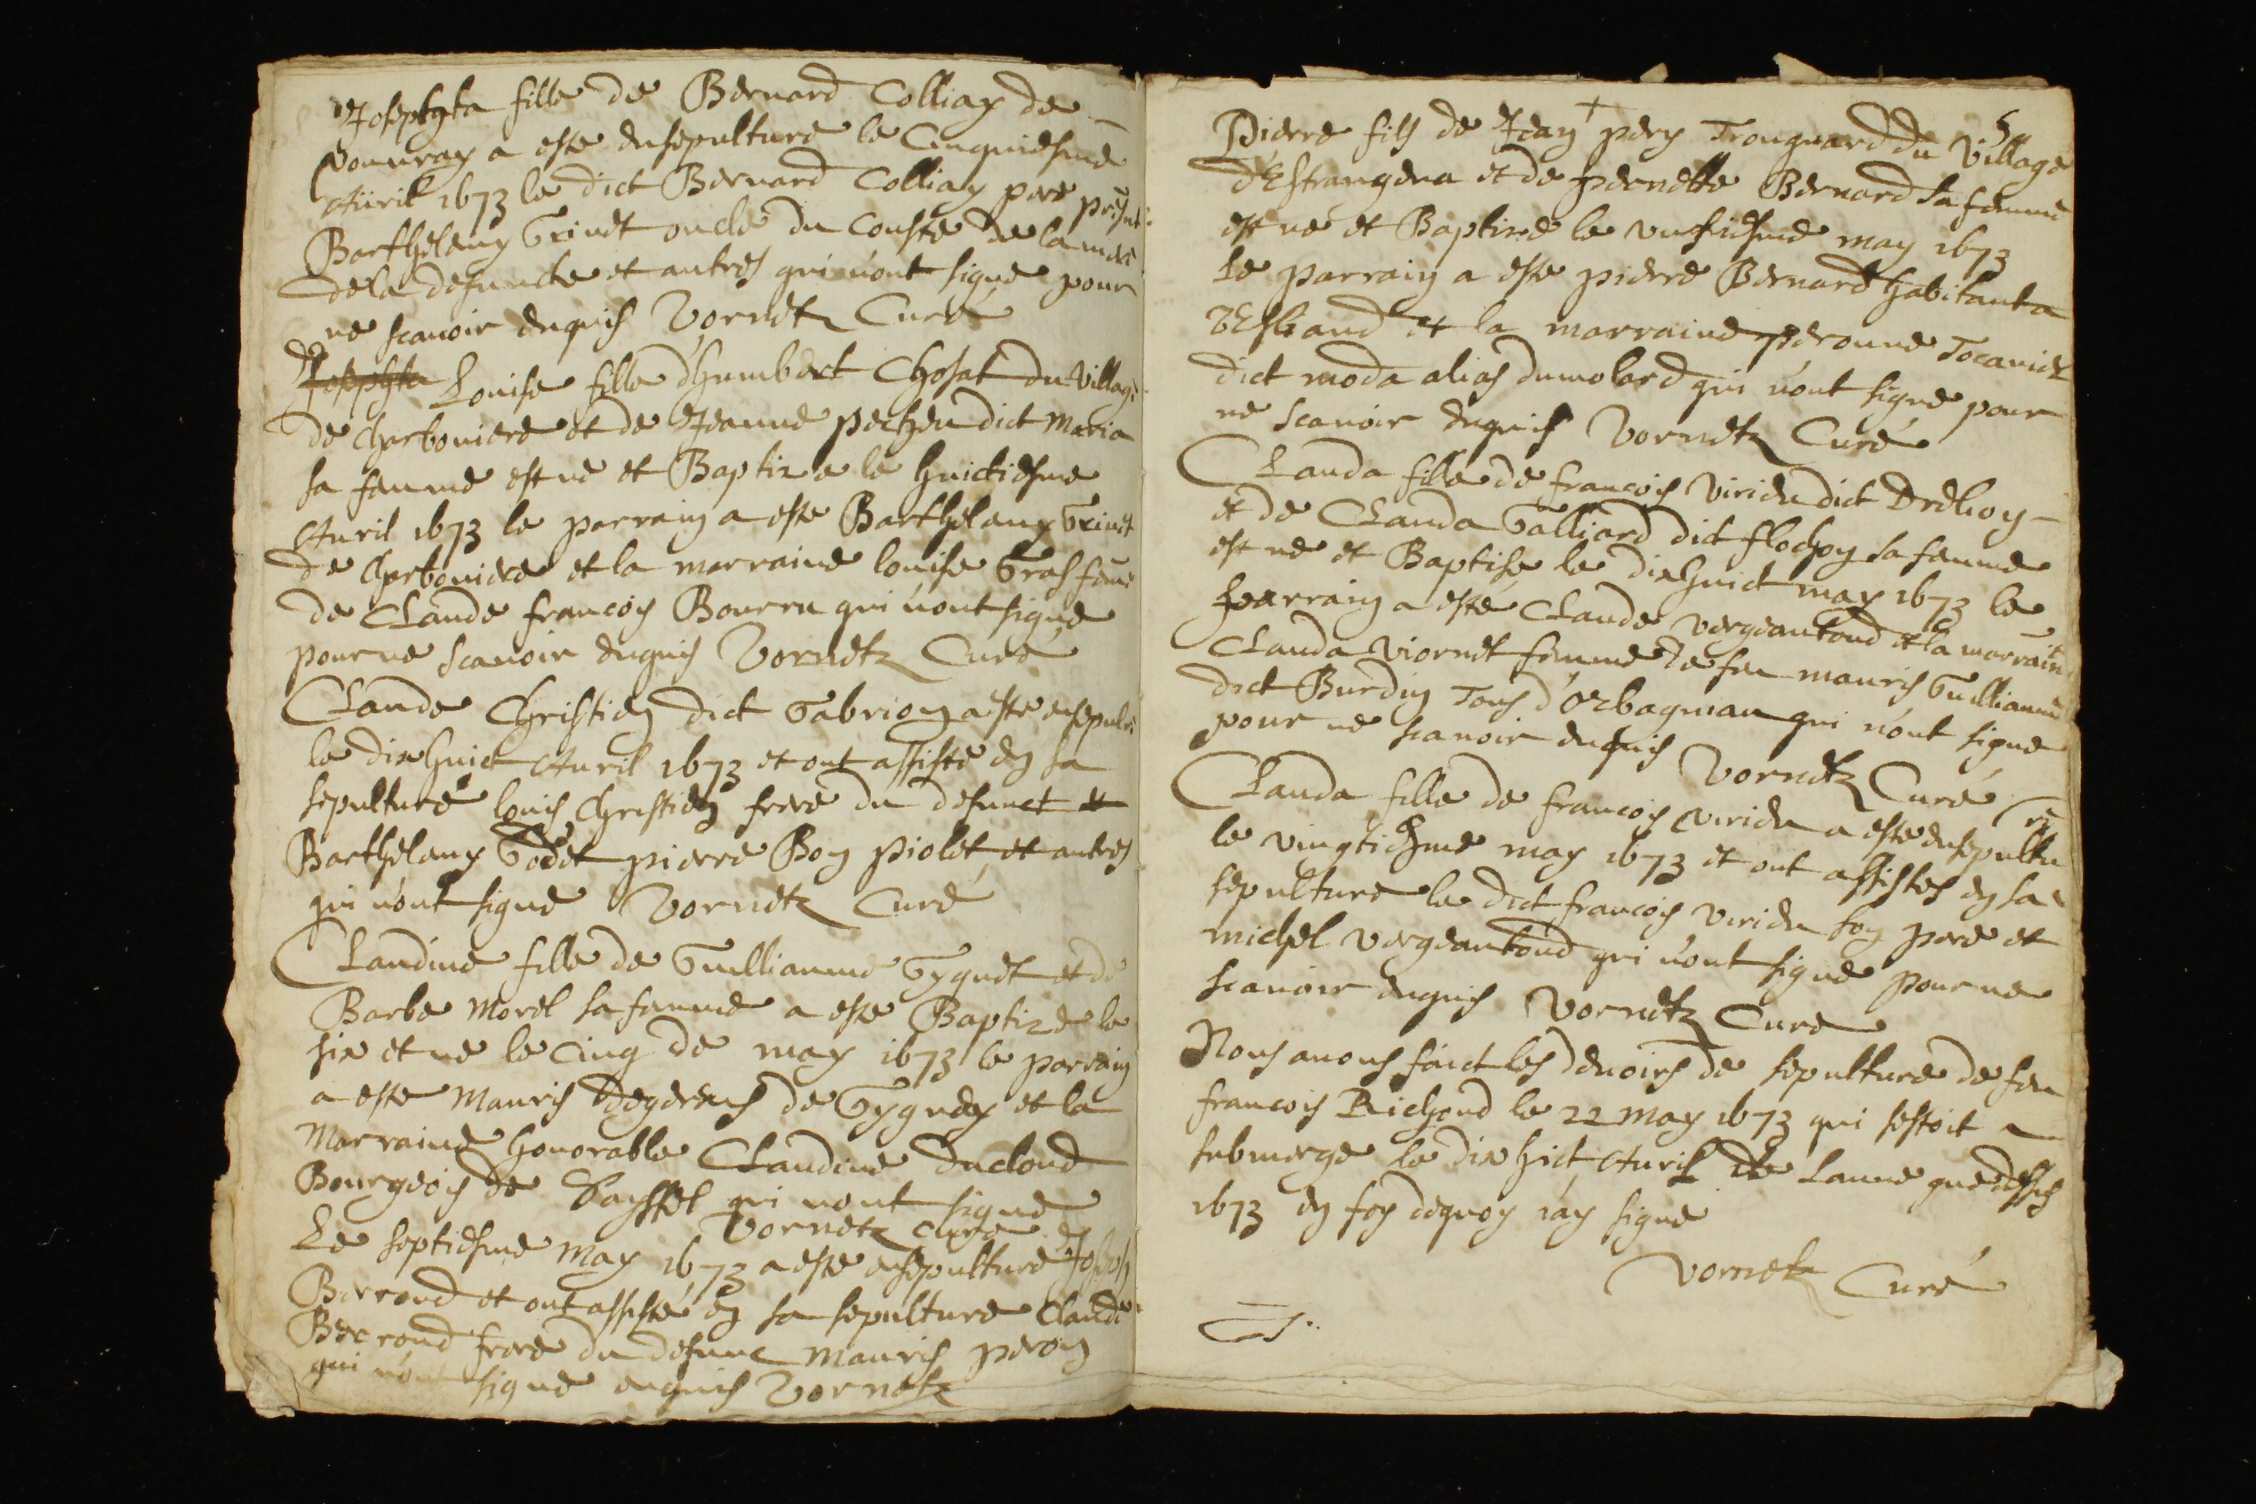 Josephta fille de Bernard Colliay de
Vouuray a este ensepulture le Cinquiesme
Auril 1673 le dict Bernard Colliay pere pnt
Barthelemy Grinet oncle du couste de la mere
de la defuncte et autres qui n'ont signe pour
ne scauoir enquis Vornetz Curé
Josephta Louise fille d'humbert Chosat du Village
de charboniere et de Jeanne pecheu dict Maria
sa femme est ne et Baptize le huictiesme
Auril 1673 le parrain a este Barthelemy Grinet
de Charboniere et la marraine louise Gras feme
de Claude francois Bourru qui n'ont signe
pour ne scauoir enquis Vornetz Curé
Claude Christien dict Gabrion a este ensepulre
le dixhuict Auril 1673 et ont assiste en sa
sepulture louis Christien frere du defunct et
Barthelemy Godet pierre Bon piolet et autres
qui n'ont signe Vornetz Curé
Claudine fille de Guilliaume Gyguet et de
Barbe Morel sa femme a este Baptize le
six et ne le Cinq de may 1673 le parrain
a este Mauris de Gyguey et la
Marraine honorable Claudine ducloud
Bourgeois de Seyssel qui n'ont signe
Vornetz Curé
Le septiesme May 1673 a este ensepulture Joseph
Berroud et ont assisté en sa sepulture Claude
Berroud frere du defunc Mauris peron
qui n'ont signe enquis Vornetz
5
Pierre fils de Jean + pery Tronguard du Village
d'Estrangera et de pernette Bernard sa femme
est né et Baptize le unziesme may 1673
Le parrain a este pierre Bernard habitant a
et la marraine peronne Tocanier
dict moda alias dumolard qui n'ont signe pour
ne scauoir enquis Vornetz Curé
Clauda fille de francois Viridu dict
et de Clauda Galliard dict flochon sa femme
est ne et Baptisé le dixhuict may 1673 le
parrain a esté Claude Vergeantoud et la marraine
Clauda Viornet femme de feu mauris Guilliaume
dict Burdin Tous d'Orbagniau qui n'ont signe
pour ne scauoir enquis
Vornetz Curé
Clauda fille de francois Viridu a este ensepultu re
le vingtiesme may 1673 et ont assistes en sa
sepulture le dict francois Viridu son pere et
michel Vergeantoud qui n'ont signe pour ne
scauoir enquis Vornetz Curé
Nous auons faict les deuoirs de sepulture de feu
francois Richoud le 22 may 1673 qui sestoit
submerge le dix hict Auril de Lanne que dessus
1673 en foy dequoy i'ay signe
Vornetz Curé